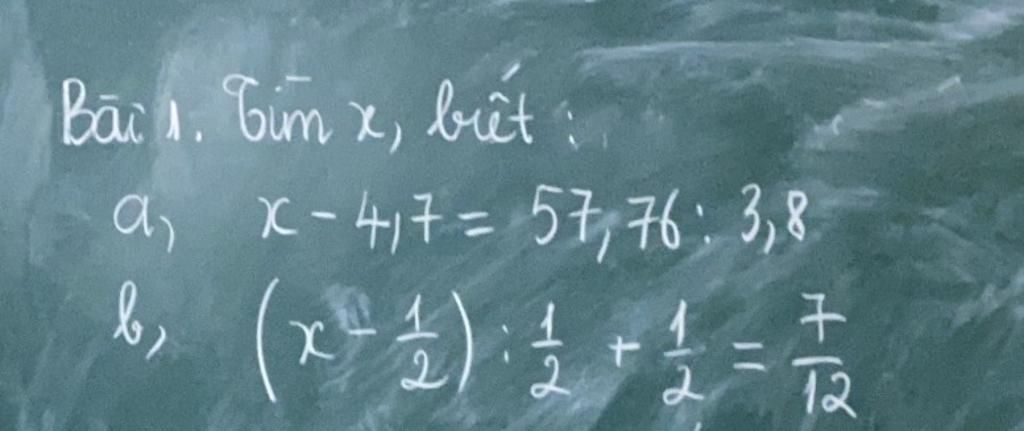 Bài 1. Tìm x, biết :
a, x - 4,7 = 57,76 : 3,8
b, (x - 1/2) : 1/2 + 1/2 = 7/12